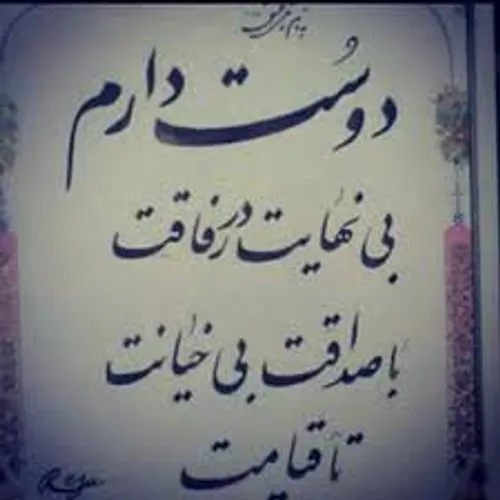 دوست دارم
بی نهایت در رفاقت
با صداقت بی خیانت
تا قیامت